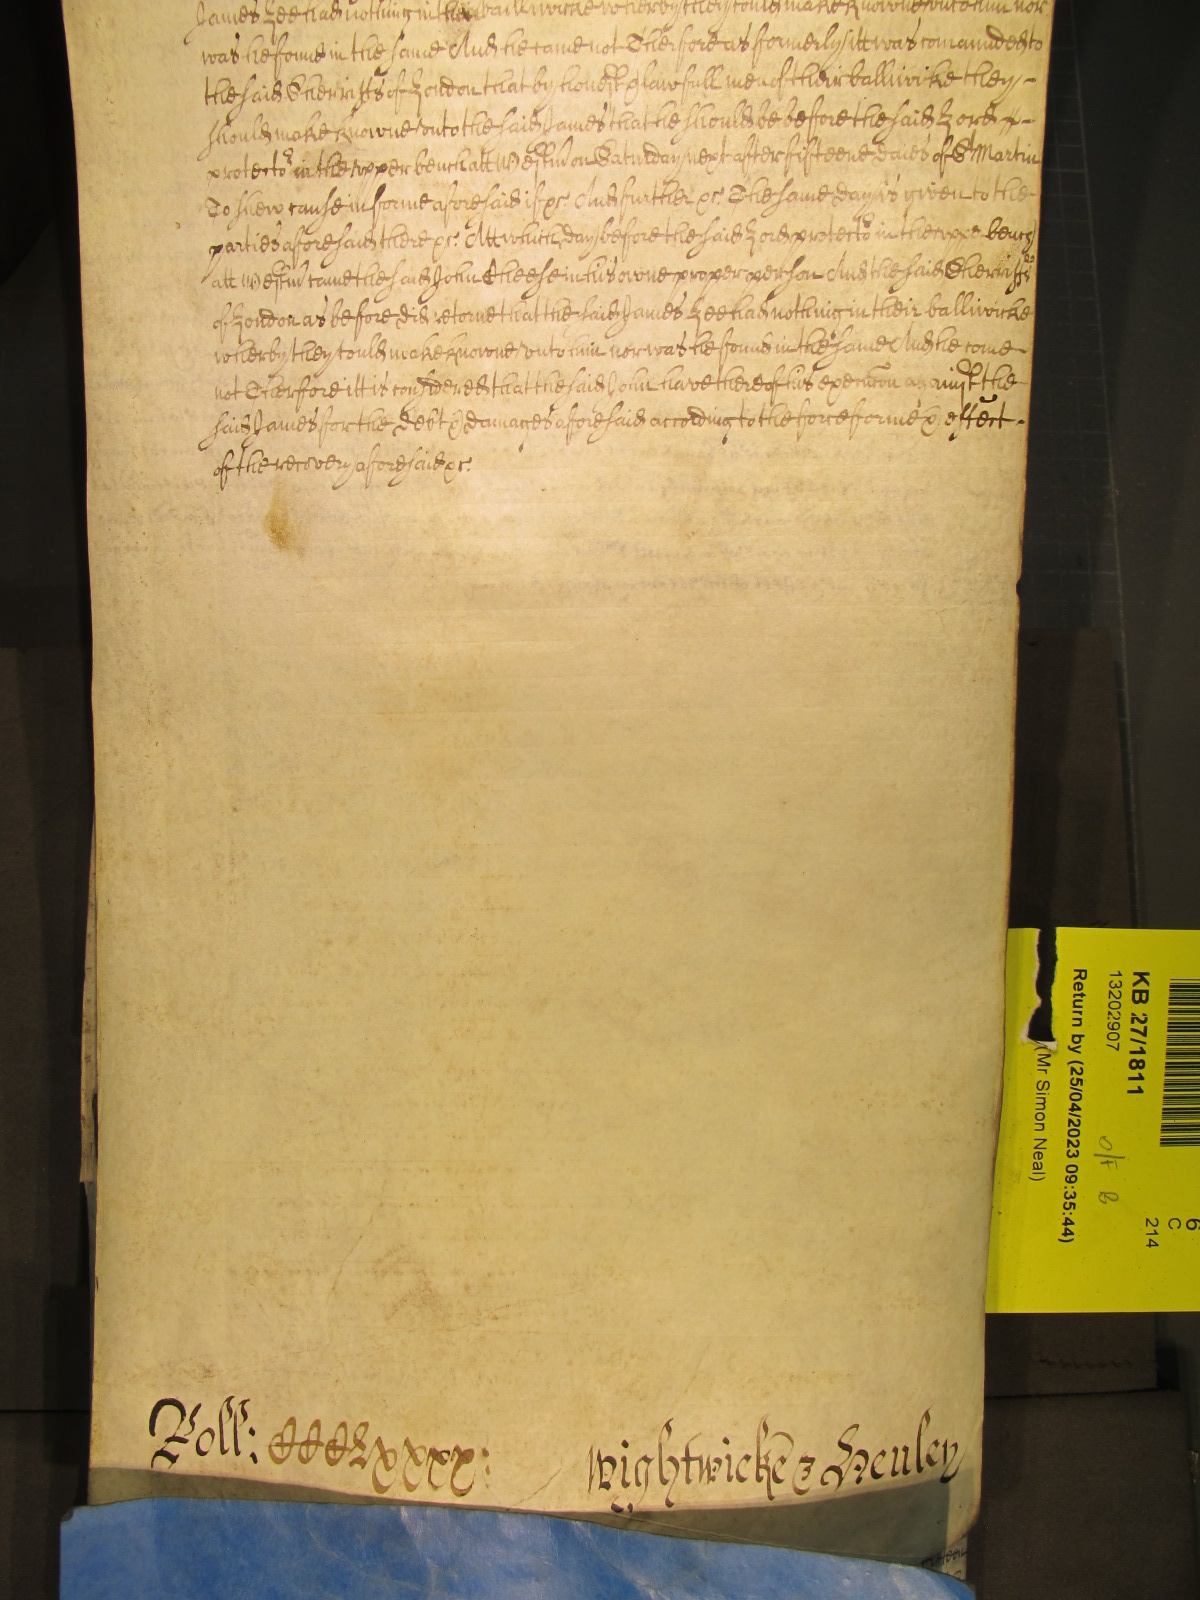 James Lee had nothing in their balliwicke wherby they could make knowne unto him nor
was he found in the same And he came not Therfore as formerly itt was comannded to
the said Sherriffs of London that by honest & lawfull men of their balliwicke they
should make knowne unto the said James that he should be before the said Lord
protector in the upper bench att Westm on Saturday next after fifteene daies of St Martin
To shew cause in forme aforesaid if &c And further &c The same day is given to the
parties aforesaid there &c Att which day before the said Lord protector in the upper bench
att Westm came the said John Cheese in his owne proper person And the said Sherriffs
of London as before did retorne that the said James Lee had nothing in their balliwicke
wherby they could make knowne unto him nor was he found in the same And he came
not Therfore itt is considered that the said John have thereof his execucon against the
said James for the debt & damages aforesaid according to the force forme & effect
of the recovery aforesaid &c
Roll: CCCCLxxxx:
Wightwicke & Henley
KB 27/1811
13202907
Return by (25/04/2023 09:35:44)
(Mr Simon Neal)
O/F B
6
C
214